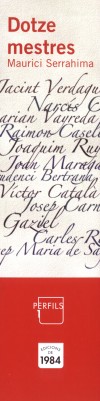 Dotze
mestres
Maurici Serrahima
Jacint Verdagu
Narcís O
arian Vayreda
Raimon Casel
Joaquim Ruy
Joan Maraga
rudenci Bertrana
Víctor Català
Josep Carn
Gaziel
Carles R
osep Maria de Sag
PERFILS
EDICIONS DE
1984